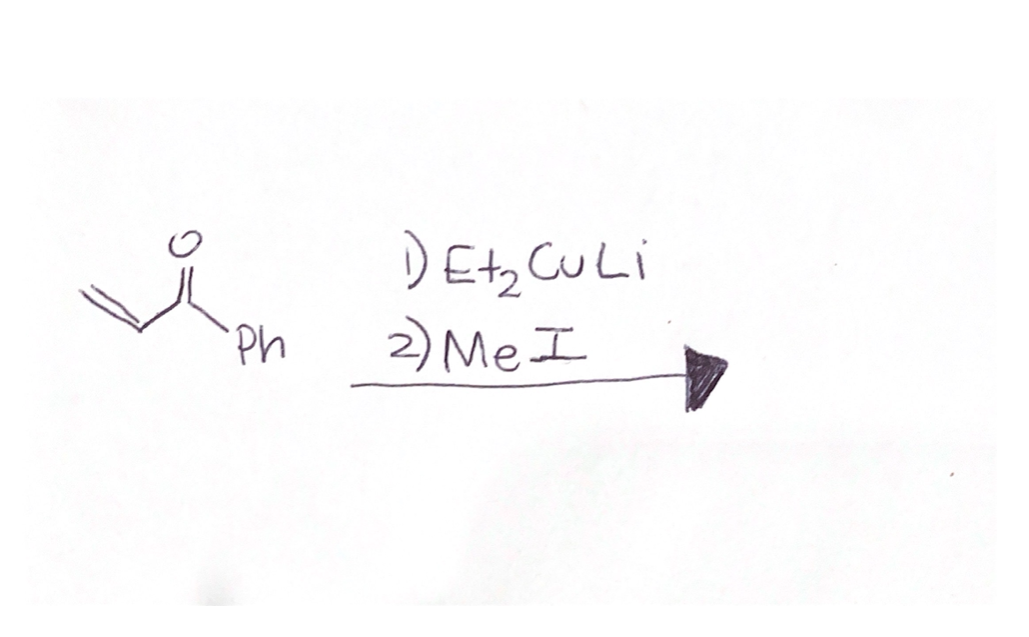 O
Ph
1) Et₂CuLi
2) MeI